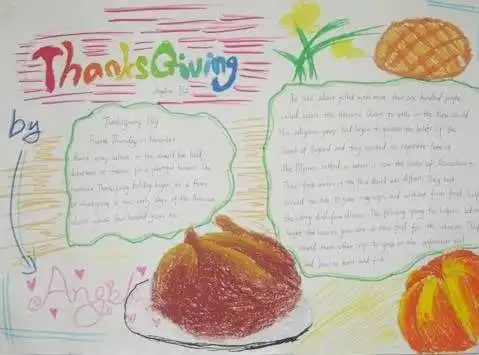 ThanksGiving
by
Angel
Thanksgiving Day
Fourth Thursday in November
Almost every culture in the world has held
celebrations of thanks for a plentiful harvest. The
American Thanksgiving holiday began as a feast
of thanksgiving in the early days of the American
colonies almost four hundred years ago.
In 1620, a boat filled with more than one hundred people
sailed across the Atlantic Ocean to settle in the New World.
This religious group had begun to question the beliefs of the
Church of England and they wanted to separate from it.
The Pilgrims settled in what is now the state of Massachusetts.
Their first winter in the New World was difficult. They had
arrived too late to grow many crops, and without fresh food, half
the colony died from disease. The following spring the
Indians taught them how to grow corn a new food for the colonists. They
showed them other crops to grow in the unfamiliar soil
and how to hunt and fish.